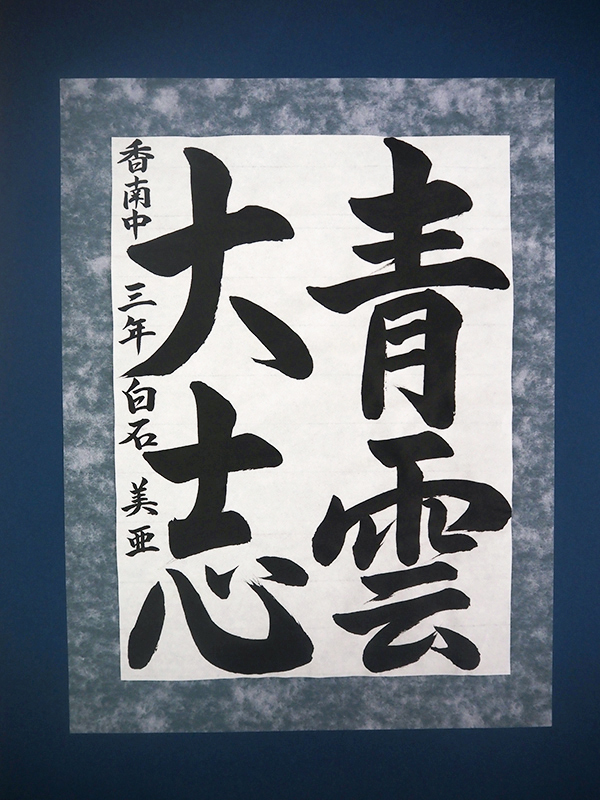 青雲
大志
香南中 三年 白石 美亜